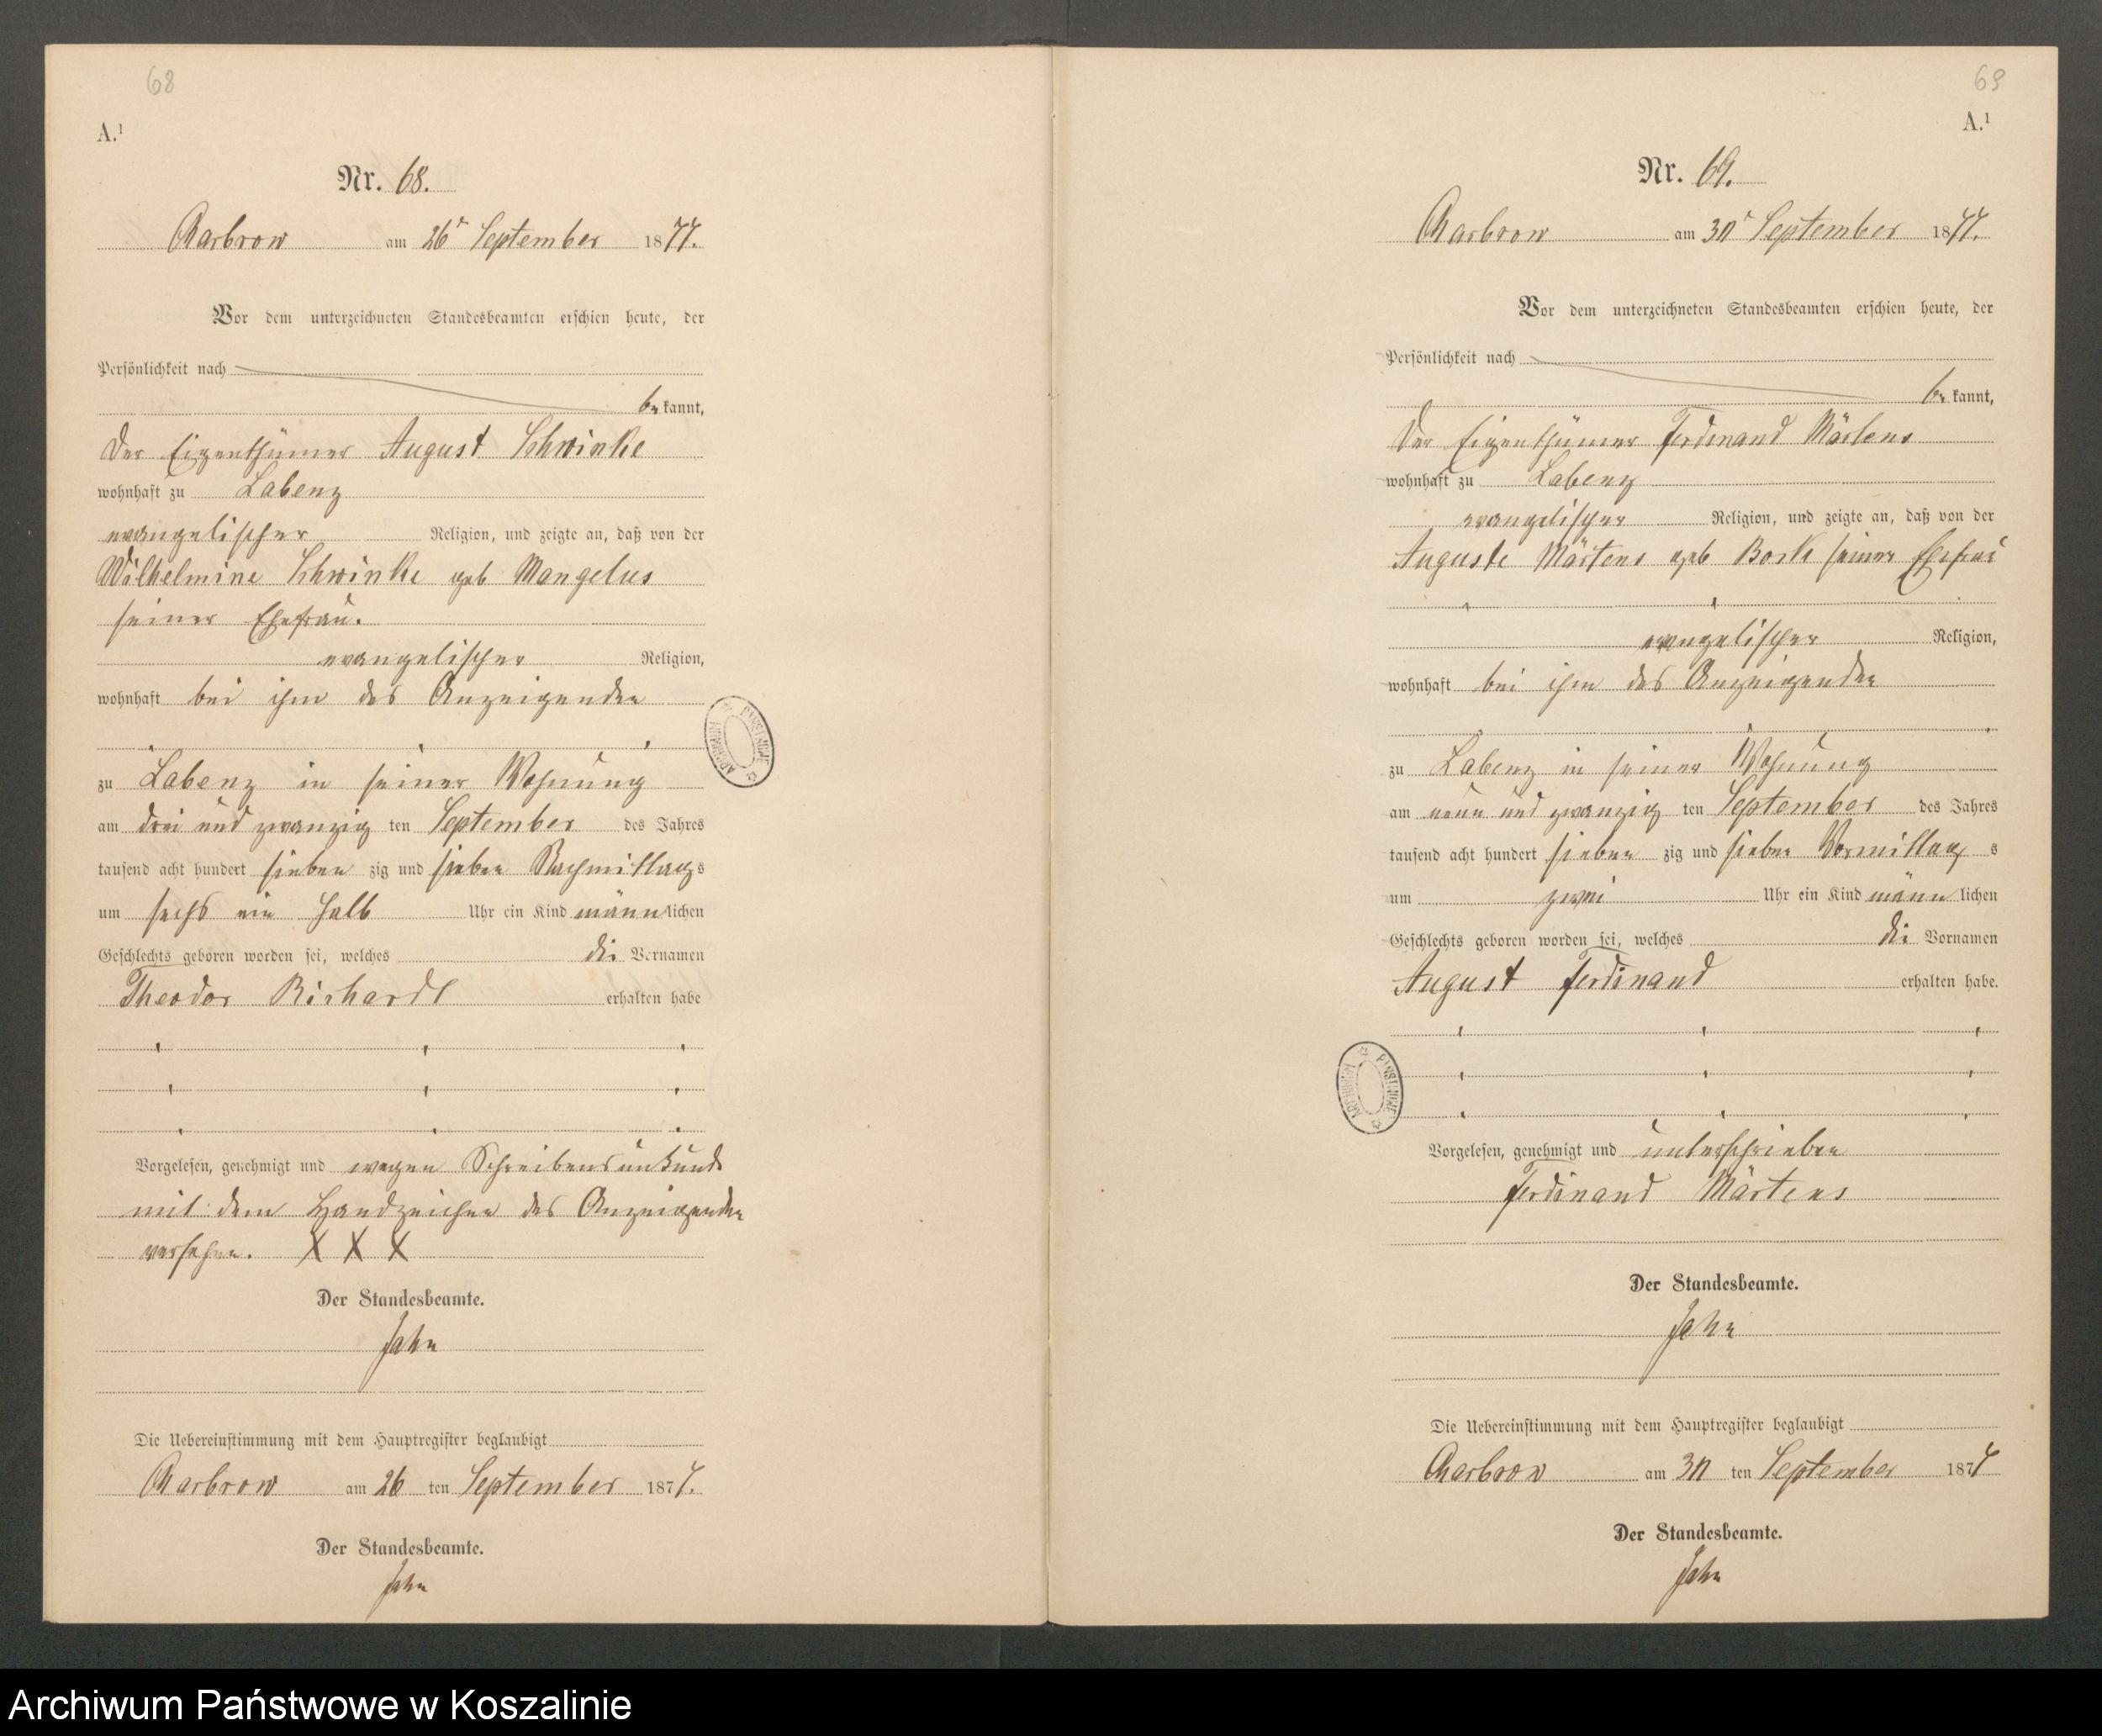 68
A.1
Nr. 68.
Charbrow am 26t September 1877.
Vor dem unterzeichneten Standesbeamten erschien heute, der
Persönlichkeit nach
bekannt,
der Eigenthümer August Schwinke
wohnhaft zu Labenz
evangelischer Religion, und zeigte an, daß von der
Wilhelmine Schwinke geb Mangelus
seiner Ehefrau.
evangelischer Religion,
wohnhaft bei ihm des Anzeigenden
zu Labenz in seiner Wohnung
am drei und zwanzig ten September des Jahres
tausend acht hundert sieben zig und sieben Nachmittags
um sechs ein halb Uhr ein Kind männlichen
Geschlechts geboren worden sei, welches die Vornamen
Theodor Richardt erhalten habe
Vorgelesen, genehmigt und wegen Schreibensunkunde
mit dem Handzeichen des Anzeigenden
versehen. X X X
Der Standesbeamte.
Jahn
Die Uebereinstimmung mit dem Hauptregister beglaubigt
Charbrow am 26 ten September 1877.
Der Standesbeamte.
Jahn
69
A.1
Nr. 69.
Charbrow am 30t September 1877.
Vor dem unterzeichneten Standesbeamten erschien heute, der
Persönlichkeit nach
bekannt,
der Eigenthümer Ferdinand Märtens
wohnhaft zu Labenz
evangelischer Religion, und zeigte an, daß von der
Auguste Märtens geb Bork seiner Ehefrau
evangelischer Religion,
wohnhaft bei ihm des Anzeigenden
zu Labenz in seiner Wohnung
am neun und zwanzig ten September des Jahres
tausend acht hundert sieben zig und sieben Vormittag s
um zwei Uhr ein Kind männlichen
Geschlechts geboren worden sei, welches die Vornamen
August Ferdinand erhalten habe.
Vorgelesen, genehmigt und unterschrieben
Ferdinand Märtens
Der Standesbeamte.
Jahn
Die Uebereinstimmung mit dem Hauptregister beglaubigt
Charbrow am 30 ten September 1877
Der Standesbeamte.
Jahn
ARCHIWUM PAŃSTWOWE
ARCHIWUM PAŃSTWOWE
Archiwum Państwowe w Koszalinie